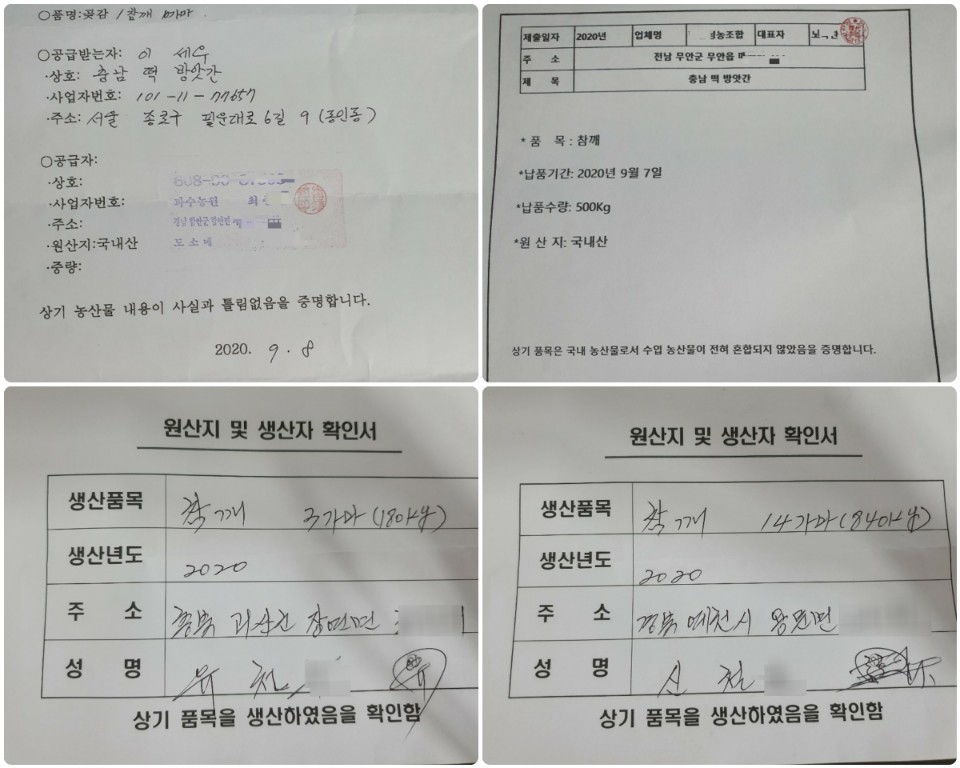 ○품명: 곶감 / 참깨
○공급받는자: 이 세우
·상호: 충남 떡 방앗간
·사업자번호: 101-11-77657
·주소: 서울 종로구 필운대로 6길 9 (통인동)
○공급자:
·상호:
·사업자번호: 파수농원 최
·주소:
·원산지:국내산 도소매
·중량:
상기 농산물 내용이 사실과 틀림없음을 증명합니다.
2020. 9. 8
제출일자 2020년 업체명 영농조합 대표자 노
주 소 전남 무안군 무안읍
제 목 충남 떡 방앗간
* 품 목 : 참깨
*납품기간: 2020년 9월 7일
*납품수량: 500Kg
*원 산 지: 국내산
상기 품목은 국내 농산물로서 수입 농산물이 전혀 혼합되지 않았음을 증명합니다.
원산지 및 생산자 확인서
생산품목 참깨 3가마(180kg)
생산년도 2020
주 소 충북 괴산군 장연면
성 명 유 천
상기 품목을 생산하였음을 확인함
원산지 및 생산자 확인서
생산품목 참깨 14가마(840kg)
생산년도 2020
주 소 경북 예천시 용문면
성 명 신 천
상기 품목을 생산하였음을 확인함